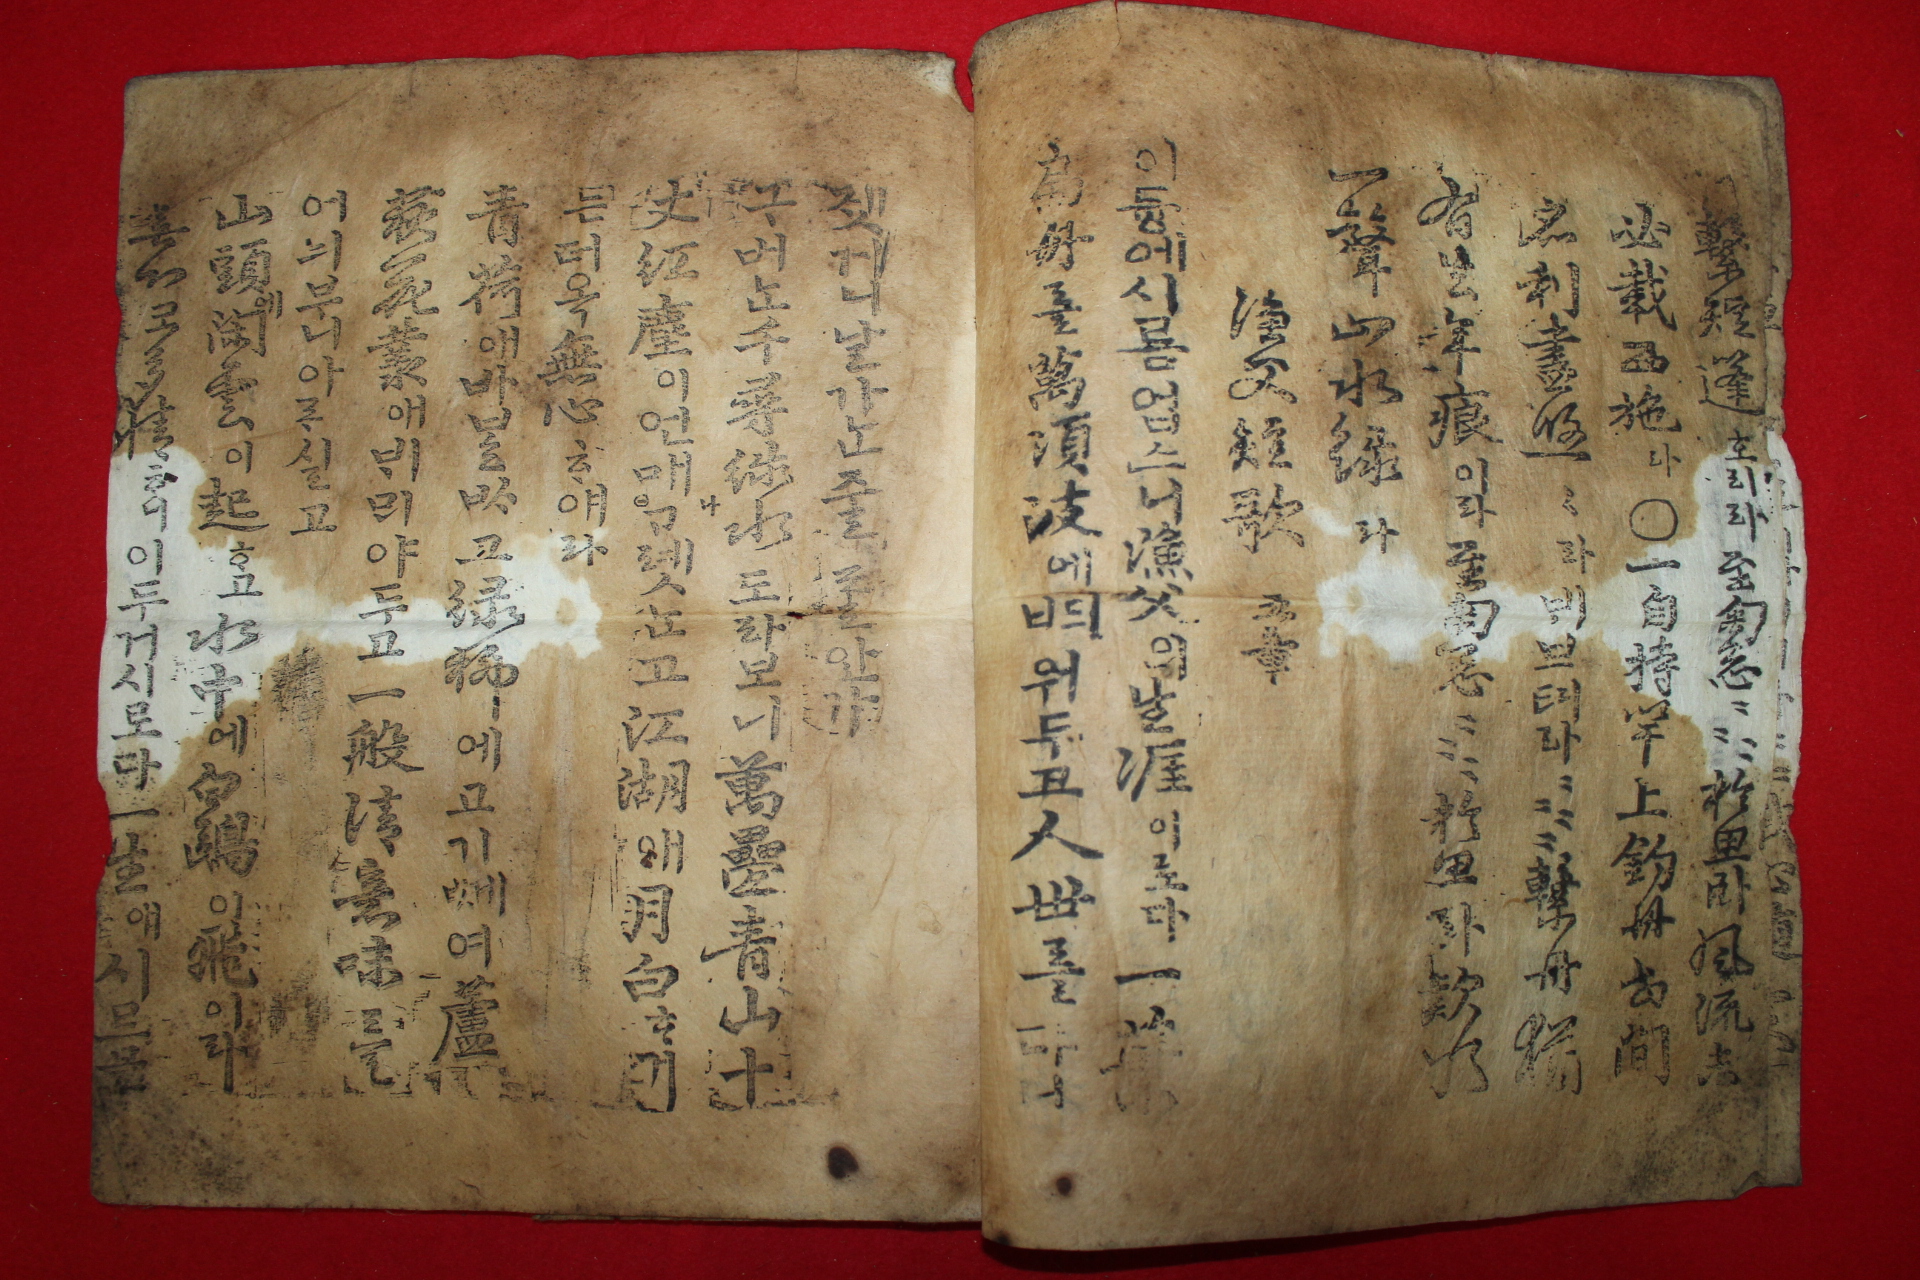 繫短蓬호리라至匊怱〃〃於思臥風流未
必載西施라○一自持竿上釣舟世間
名利盡悠〃라ᄇᆡ브텨라〃〃〃繫舟猶
有去年痕이라至匊怱〃〃於思臥欸乃
一聲山水綠라
漁父短歌 五章
이듕에시름업스니漁父의生涯이로다一葉
扁舟를萬頃波에ᄠᅴ워두고人世를다니
젯거니날가ᄂᆞᆫ줄를안가
구버ᄂᆞᆫ千尋綠水도라보니萬疊青山十
丈紅塵이언매나ᄀᆞ렛ᄂᆞᆫ고江湖애月白ᄒᆞ거
든더옥無心ᄒᆞ얘라
青荷애바ᄇᆞᆯᄡᆞ고綠柳에고기ᄢᅦ여蘆
荻花叢애ᄇᆡᄆᆡ야두고一般清意味를
어늬부니아ᄅᆞ실고
山頭에閑雲이起ᄒᆞ고水中에白鷗이飛이라
無心코多情ᄒᆞ니이두거시로다一生애시르믈